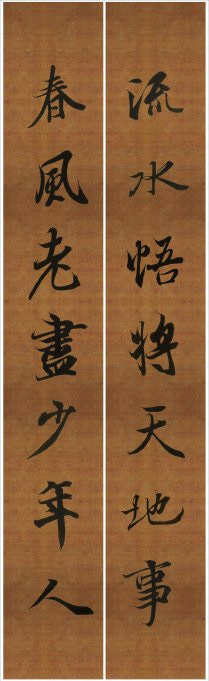 流水悟將天地事
春風老盡少年人